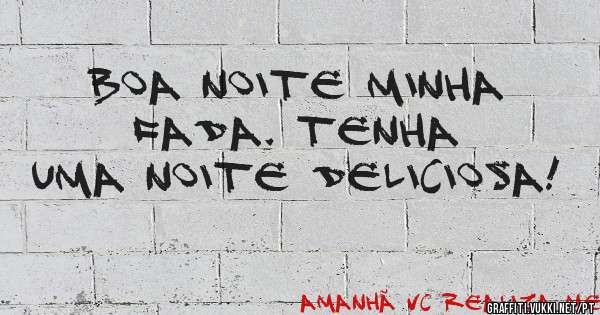 BOA NOITE MINHA
FADA. TENHA
UMA NOITE DELICIOSA!
AMANHÃ VC REALIZA ME
GRAFFITI.VUKKI.NET/PT